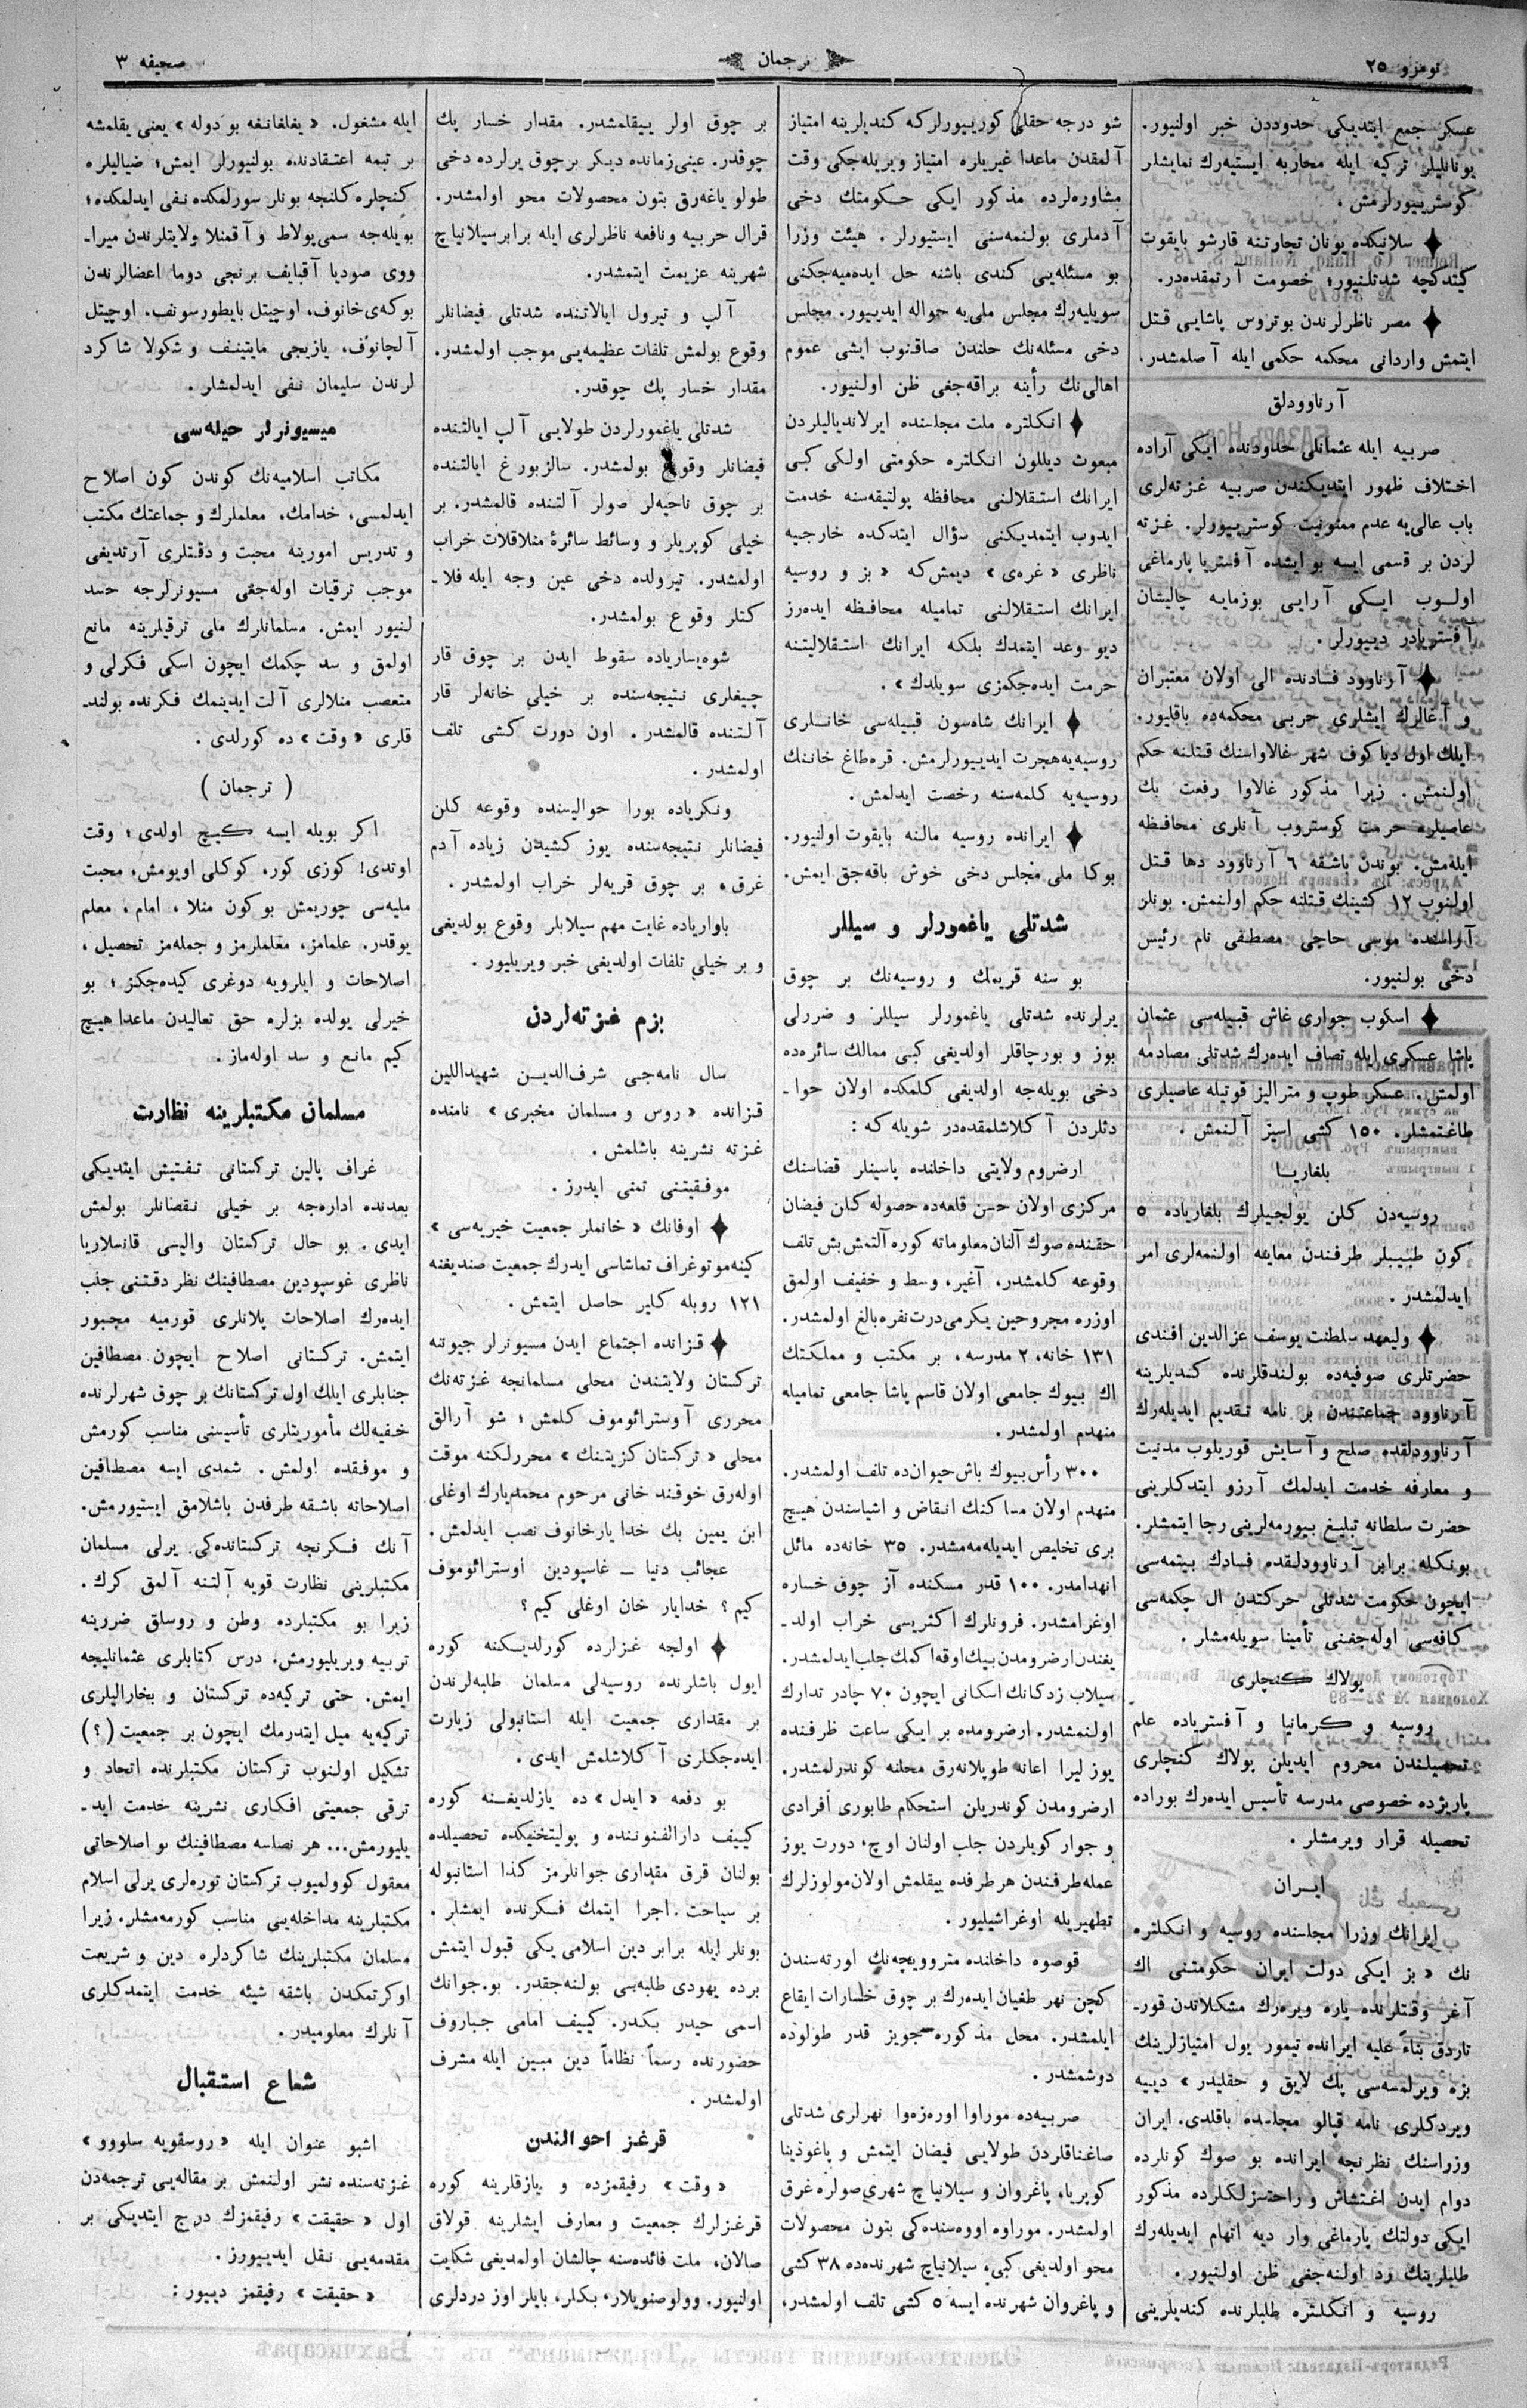 نومرو ٢٥
ترجمان
صحیفه ٣
عسكر جمع ایتدیكی حدوددن خبر اولنیور.
یونانلیلر تركیه ایله محاربه ایستیه‌رك نمایشلر
كوستریییورلرمش.
سلانیكده یونان تجارتنه قارشو بایقوت
كیتدكچه شدتلنیور؛ خصومت آرتمقده‌در.
مصر ناظرلرندن بوتروس پاشایی قتل
ایتمش واردانی محكمه حكمی ایله آصلمشدر.
آرناوودلق
صربیه ایله عثمانلی حدودنده ایكی آراده
اختلاف ظهور ایتدیكندن صربیه غزته‌لری
باب عالی‌یه عدم ممنونیت كوستریییورلر. غزته
لردن بر قسمی ایسه بو ایشده آفستریا پارماغی
اولوب ایكی آرایی بوزمایه چالیشان
آفستریادر دییورلر.
آرناوود فسادنده الی اولان معتبران
و آغالرك ایشلری حربی محكمه‌ده باقلیور.
ایلك اول دیاكوف شهر غالاواسنك قتلنه حكم
اولنمش. زیرا مذكور غالاوا رفعت بك
عاصیلره حرمت كوستروب آنلری محافظه
ایله‌مش. بوندن باشقه ٦ آرناوود دها قتل
اولنوب ١٢ كشینك قتلنه حكم اولنمش. بونلر
آراسنده موسی حاجی مصطفی نام رئیس
دخی بولنیور.
اسكوب جواری غاش قبیله‌سی عثمان
پاشا عسكری ایله تصاف ایده‌رك شدتلی مصادمه
اولمش. عسكر طوب و مترالیز قوتیله عاصیلری
طاغتمشلر. ١٥٠ كشی اسیر آلنمش.
بلغاریا
روسیه‌دن كلن یولجیلرك بلغاریاده ٥
كون طبیبلر طرفندن معاینه اولنمه‌لری امر
ایدلمشدر.
ولیعهد سلطنت یوسف عزالدین افندی
حضرتلری صوفیه‌ده بولندقلرنده كندیلرینه
آرناوود جماعتندن بر نامه تقدیم ایدیله‌رك
آرناوودلقده صلح و آسایش قوریلوب مدنیت
و معارفه خدمت ایدلمك آرزو ایتدكلرینی
حضرت سلطانه تبلیغ بیورمه‌لرینی رجا ایتمشلر.
بونكله برابر آرناوودلقده فسادك بیتمه‌سی
ایچون حكومت شدتلی حركتدن ال چكمه‌سی
كافه‌سی اوله‌جغنی تأمینا سویله‌مشلر.
بولاك كنجلری
روسیه و كرمانیا و آفستریاده علم
تحصیلندن محروم ایدیلن بولاك كنجلری
پاریژده خصوصی مدرسه تأسیس ایده‌رك بوراده
تحصیله قرار ویرمشلر.
ایران
ایرانك وزرا مجلسنده روسیه و انكلتره
نك « بز ایكی دولت ایران حكومتنی اك
آغر وقتلرنده پاره ویره‌رك مشكلاتدن قور-
تاردق بناءً علیه ایرانده تیمور یول امتیازلرینك
بزه ویرلمسه‌سی پك لایق و حقلیدر » دییه
ویردكلری نامه قپالو مجلسده باقلدی. ایران
وزراسنك نظرنجه ایرانده بو صوك كونلرده
دوام ایدن اغتشاش و راحتسزلكلرده مذكور
ایكی دولتك پارماغی وار دیه اتهام ایدیله‌رك
طلبلرینك رد اولنه‌جغی ظن اولنیور.
روسیه و انكلتره طلبلرنده كندیلرینی
شو درجه حقلی كوریییورلركه كندیلرینه امتیاز
آلمقدن ماعدا غیریلره امتیاز ویریله‌جكی وقت
مشاوره‌لرده مذكور ایكی حكومتك دخی
آدملری بولنمه‌سنی ایستیورلر. هیئت وزرا
بو مسئله‌یی كندی باشنه حل ایده‌میه‌جكنی
سویلیه‌رك مجلس ملی‌یه حواله ایدییور. مجلس
دخی مسئله‌نك حلندن صاقنوب ایشی عموم
اهالی‌نك رأینه براقه‌جغی ظن اولنیور.
انكلتره ملت مجلسنده ایرلاندیالیلردن
مبعوث دیللون انكلتره حكومتی اولكی كبی
ایرانك استقلالنی محافظه پولتیقه‌سنه خدمت
ایدوب ایتمدیكنی سؤال ایتدكده خارجیه
ناظری « غره‌ی » دیمش‌كه « بز و روسیه
ایرانك استقلالنی تمامیله محافظه ایده‌رز
دیو وعد ایتمدك بلكه ایرانك استقلالیتنه
حرمت ایده‌جكمزی سویلدك ».
ایرانك شاه‌سون قبیله‌سی خانلری
روسیه‌یه هجرت ایدییورلرمش. قره‌طاغ خاننك
روسیه‌یه كلمه‌سنه رخصت ایدلمش.
ایرانده روسیه مالنه بایقوت اولنیور.
بوكا ملی مجلس دخی خوش باقه‌جق ایمش.
شدتلی یاغمورلر و سیللر
بو سنه قریمك و روسیه‌نك بر چوق
یرلرنده شدتلی یاغمورلر سیللر و ضررلی
بوز و بورچاقلر اولدیغی كبی ممالك سائره‌ده
دخی بویله‌جه اولدیغی كلمكده اولان حوا-
دثلردن آكلاشلمقده‌در شویله‌كه:
ارضروم ولایتی داخلنده پاسینلر قضاسنك
مركزی اولان حسن قلعه‌ده حصوله كلن فیضان
حقنده صوك آلنان معلوماته كوره آلتمش‌بش تلف
وقوعه كلمشدر. آغیر، وسط و خفیف اولمق
اوزره مجروحین یكرمی‌درت نفره بالغ اولمشدر.
١٣١ خانه، ٢ مدرسه، بر مكتب و مملكتك
اك بیوك جامعی اولان قاسم پاشا جامعی تمامیله
منهدم اولمشدر.
٣٠٠ رأس بیوك باش حیوان‌ده تلف اولمشدر.
منهدم اولان مساكنك انقاض و اشیاسندن هیچ
بری تخلیص ایدیله‌مه‌مشدر. ٣٥ خانه‌ده مائل
انهدامدر. ١٠٠ قدر مسكنده آز چوق خساره
اوغرامشدر. فرونلرك اكثریسی خراب اولد-
یغندن ارضرومدن بیك اوقه اكمك جلب ایدلمشدر.
سیلاب زدكانك اسكانی ایچون ٧٠ چادر تدارك
اولنمشدر. ارضرومده بر ایكی ساعت ظرفنده
یوز لیرا اعانه طوپلانه‌رق محلنه كوندرلمشدر.
ارضرومدن كوندریلن استحكام طابوری افرادی
و جوار كویلردن جلب اولنان اوچ، دورت یوز
عمله‌طرفندن هر طرفده ییقلمش اولان مولوزلرك
تطهیریله اوغراشیلیور.
قوصوه داخلنده متروویچه‌نك اورته‌سندن
كچن نهر طغیان ایده‌رك بر چوق خسارات ایقاع
ایلمشدر. محل مذكوره جویز قدر طولوده
دوشمشدر.
صربیه‌ده موراوا اوره‌زه‌وا نهرلری شدتلی
صاغناقلردن طولایی فیضان ایتمش و یاغوذینا
كوپریا، یاغروان و سیلانیاچ شهری صولره غرق
اولمشدر. موراوه اووه‌سنده‌كی بتون محصولات
محو اولدیغی كبی، سیلانیاچ شهرنده‌ده ٣٨ كشی
و پاغروان شهرنده ایسه ٥ كشی تلف اولمشدر،
بر چوق اولر ییقلمشدر. مقدار خسار پك
چوقدر. عینی زمانده دیكر بر چوق یرلرده دخی
طولو یاغه‌رق بتون محصولات محو اولمشدر.
قرال حربیه و نافعه ناظرلری ایله برابر سیلانیاچ
شهرینه عزیمت ایتمشدر.
آلپ و تیرول ایالاتنده شدتلی فیضانلر
وقوع بولمش تلفات عظیمه‌یی موجب اولمشدر.
مقدار خسار پك چوقدر.
شدتلی یاغمورلردن طولایی آلپ ایالتنده
فیضانلر وقوع بولمشدر. سالزبورغ ایالتنده
بر چوق ناحیه‌لر صولر آلتنده قالمشدر. بر
خیلی كوپریلر و وسائط سائرهٔ مناقلات خراب
اولمشدر. تیرولده دخی عین وجه ایله فلا-
كتلر وقوع بولمشدر.
شوه‌یساریاده سقوط ایدن بر چوق قار
چیغلری نتیجه‌سنده بر خیلی خانه‌لر قار
آلتنده قالمشدر. اون دورت كشی تلف
اولمشدر.
ونكریاده بورا حوالیسنده وقوعه كلن
فیضانلر نتیجه‌سنده یوز كشیدن زیاده آدم
غرق، بر چوق قریه‌لر خراب اولمشدر.
باواریاده غایت مهم سیلابلر وقوع بولدیغی
و بر خیلی تلفات اولدیغی خبر ویریلیور.
بزم غزته‌لردن
سال نامه‌جی شرف‌الدین شهیداللین
قزانده « روس و مسلمان مخبری » نامنده
غزته نشرینه باشلمش.
موفقیتنی تمنی ایدرز.
اوفانك « خانملر جمعیت خیریه‌سی »
كینه‌موتوغراف تماشاسی ایدرك جمعیت صندیغنه
١٢١ روبله كلیر حاصل ایتمش.
قزانده اجتماع ایدن مسیونرلر جیوننه
تركستان ولایتندن محلی مسلمانجه غزته‌نك
محرری آوسترائوموف كلمش؛ شو آرالق
محلی « تركستان كزیتنك » محررلكنه موقت
اوله‌رق خوقند خانی مرحوم محمدیارك اوغلی
ابن یمین بك خدایارخانوف نصب ایدلمش.
عجائب دنیا — غاسپودین اوسترائوموف
كیم؟ خدایار خان اوغلی كیم؟
اولجه غزلرده كورلدیكنه كوره
ایول باشلرنده روسیه‌لی مسلمان طلبه‌لرندن
بر مقداری جمعیت ایله استانبولی زیارت
ایده‌جكلری آكلاشلمش ایدی.
بو دفعه « ایدل » ده یازلدیغنه كوره
كییف دارالفنوننده و پولیتخنیكده تحصیلده
بولنان قرق مقداری جوانلرمز كذا استانبوله
بر سیاحت اجرا ایتمك فكرنده ایمشلر.
بونلر ایله برابر دین اسلامی یكی قبول ایتمش
برده یهودی طلبه‌سی بولنه‌جقدر. بو جوانك
اسمی حیدر بكدر. كییف امامی جباروف
حضورنده رسماً نظاماً دین مبین ایله مشرف
اولمشدر.
قرغز احوالندن
« وقت » رفیقمزده و یازقلرینه كوره
قرغزلرك جمعیت و معارف ایشلرینه قولاق
صالان، ملت فائده‌سنه چالشان اولمدیغی شكایت
اولنیور. وولوصنویلار، بكلر، بایلر اوز دردلری
ایله مشغول. « یغلغانغه بو دوله » یعنی یقلمشه
بر تپمه اعتقادنده بولنیورلر ایمش؛ ضیالیلره
كنجلره كلنجه بونلر سورلمكده نفی ایدلمكده؛
بویله‌جه سمی‌پولاط و آقمنلا ولایتلرندن میرا-
ووی صودیا آقبایف برنجی دوما اعضالرندن
بوكه‌ی‌خانوف، اوچیتل بایطورسونف. اوچیتل
آلجانوف، یازیجی ماپتینف و شكولا شاكرد
لرندن سلیمان نفی ایدلمشلر.
میسیونرلر حیله‌سی
مكاتب اسلامیه‌نك كوندن كون اصلاح
ایدلمسی، خدامك، معلملرك و جماعتك مكتب
و تدریس امورینه محبت و دقتلری آرتدیغی
موجب ترقیات اوله‌جغی مسیونرلرجه حسد
لنیور ایمش. مسلمانلرك ملی ترقیلرینه مانع
اولمق و سد چكمك ایچون اسكی فكرلی و
متعصب منلالری آلت ایدینمك فكرنده بولند-
قلری « وقت » ده كورلدی.
( ترجمان )
اكر بویله ایسه كیچ اولدی؛ وقت
اوتدی! كوزی كور، كوكلی اویومش، محبت
ملیه‌سی چوریمش بوكون منلا، امام، معلم
یوقدر. علمامز، معلملرمز و جمله‌مز تحصیل،
اصلاحات و ایلرویه دوغری كیده‌جكز؛ بو
خیرلی یولده بزلره حق تعالیدن ماعدا هیچ
كیم مانع و سد اوله‌ماز.
مسلمان مكتبلرینه نظارت
غراف پالین تركستانی تفتیش ایتدیكی
بعدنده اداره‌جه بر خیلی نقصانلر بولمش
ایدی. بو حال تركستان والیسی قانسلاریا
ناظری غوسپودین مصطافینك نظر دقتنی جلب
ایده‌رك اصلاحات پلانلری قورمیه مجبور
ایتمش. تركستانی اصلاح ایچون مصطافین
جنابلری ایلك اول تركستانك بر چوق شهرلرنده
خفیه‌لك مأموریتلری تأسیسنی مناسب كورمش
و موفقده اولمش. شمدی ایسه مصطافین
اصلاحاته باشقه طرفدن باشلامق ایستیورمش.
آنك فكرنجه تركستانده‌كی یرلی مسلمان
مكتبلرینی نظارت قویه آلتنه آلمق كرك.
زیرا بو مكتبلرده وطن و روسلق ضررینه
تربیه ویریلیورمش. درس كتابلری عثمانلیجه
ایمش. حتی تركیه‌ده تركستان و بخارالیلری
تركیه‌یه میل ایتدرمك ایچون بر جمعیت (؟)
تشكیل اولنوب تركستان مكتبلرنده اتحاد و
ترقی جمعیتی افكاری نشرینه خدمت اید-
یلیورمش... هر نصلسه مصطافینك بو اصلاحاتی
معقول كورلمیوب تركستان توره‌لری یرلی اسلام
مكتبلرینه مداخله‌یی مناسب كورمه‌مشلر. زیرا
مسلمان مكتبلرینك شاكردلره دین و شریعت
اوكرتمكدن باشقه شیئه خدمت ایتمدكلری
آنلرك معلومیدر.
شعاع استقبال
اشبو عنوان ایله « روسقویه سلووو »
غزته‌سنده نشر اولنمش بر مقاله‌یی ترجمه‌دن
اول « حقیقت » رفیقمزك درج ایتدیكی بر
مقدمه‌یی نقل ایدییورز.
« حقیقت » رفیقمز دییور: